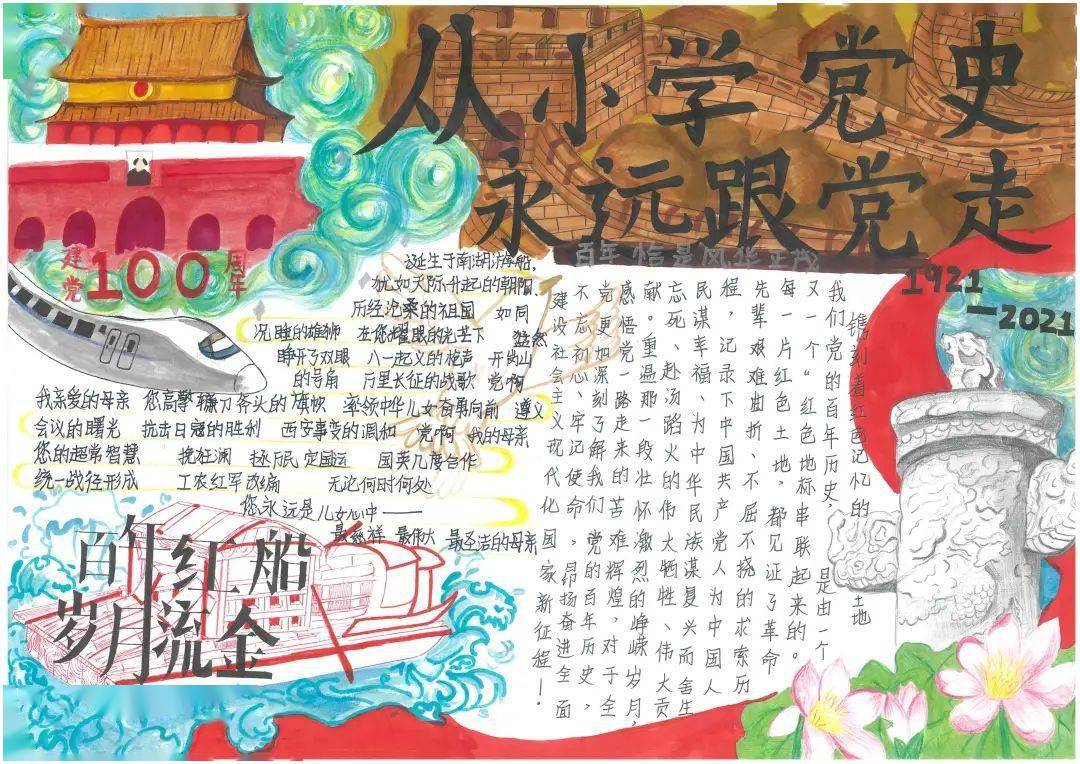 从小学党史
永远跟党走
百年恰是风华正茂
1921
—2021
建党100周年
诞生于南湖游船，
犹如天际升起的朝阳、
历经沧桑的祖国 如同
沉睡的雄狮 在您耀眼的光芒下 猛然
睁开了双眼 八一起义的枪声 井岗山
的号角 万里长征的战歌 党啊
我亲爱的母亲 您高擎镰刀斧头的旗帜 率领中华儿女奋勇向前 遵义
会议的曙光 抗击日寇的胜利 西安事变的调和 党啊 我的母亲
您的超常智慧 挽狂澜 拯万民 定国运 国共几度合作
统一战线形成 工农红军改编 无论何时何处
您永远是儿女心中——
最慈祥 最伟大 最圣洁的母亲
百年红船
岁月流金
镌刻着红色记忆的土地
我们党的百年历史，是由一个
又一个“红色地标串联起来的。
每一片红色土地，都见证了革命
先辈艰难曲折、不屈不挠的求索历
程，记录下中国共产党人为中国人
民谋幸福、为中华民族谋复兴而舍生
忘死、赴汤蹈火的伟大牺牲、伟大贡
献。重温那一段壮怀激烈的峥嵘岁月，
感悟党一路走来的苦难辉煌，对于全
党更加深刻了解我们党的百年历史，
不忘初心、牢记使命，昂扬奋进全面
建设社会主义现代化国家新征程！